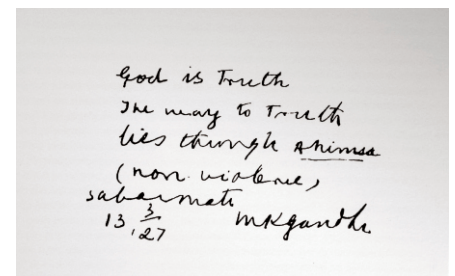 God is Truth
The way to Truth
lies through ahimsa
(non-violence)
Sabarmati
13 3/27 MKGandhi